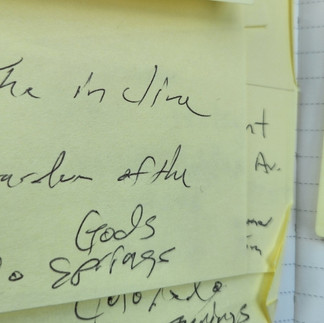 The incline
arden of the
Gods
o Springs
nt
Av.
Colorado
prings